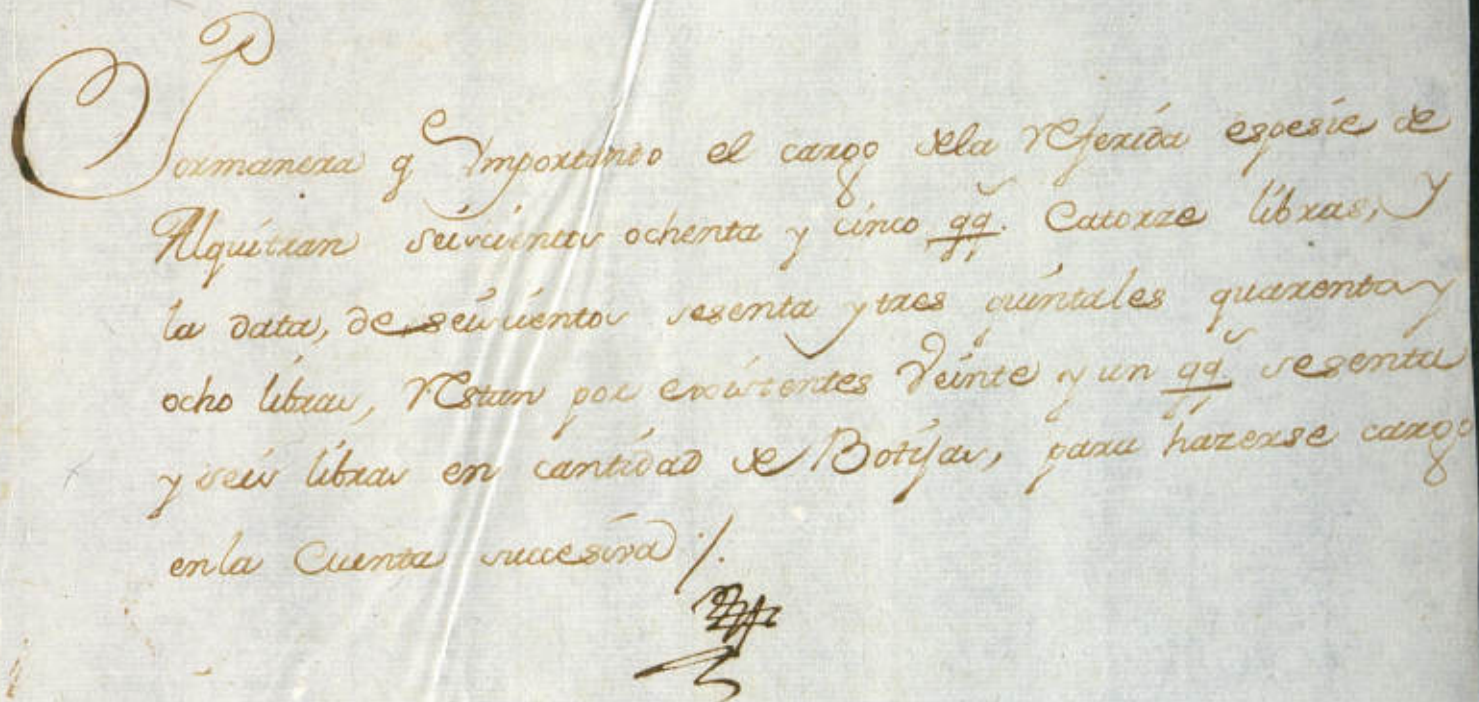 Pormanera q Ymportando el cargo dela Referida espesie de
Alquitran seiscientos ochenta y cinco qq.s Catorze libras, y
la data, de seiscientos sesenta y tres quintales quarenta y
ocho libras, Restan por existentes Veinte y un qq.s sesenta
y seis libras en cantidad de Botijas, para hazerse cargo
enla Cuenta succesiva ./.